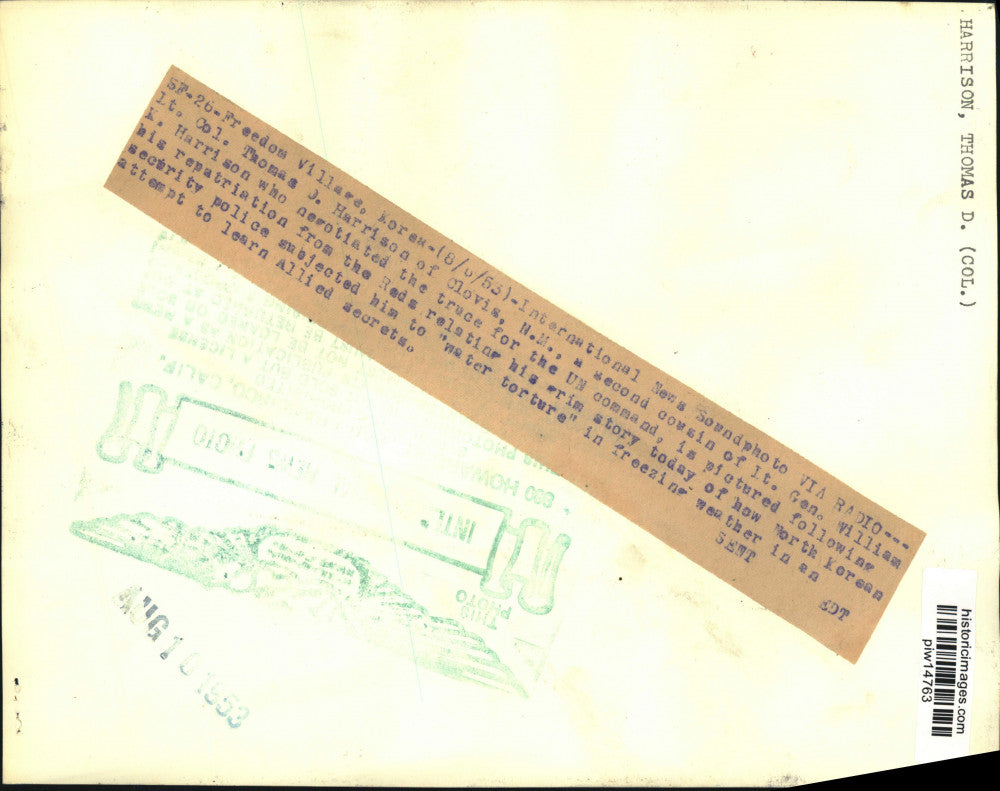 HARRISON, THOMAS D. (COL.)
SF-26-Freedom Village, Korea-(8/6/53)-International News Soundphoto VIA RADIO---
Lt. Col. Thomas D. Harrison of Clovis, N.M., a second cousin of Lt. Gen. William
K. Harrison who negotiated the truce for the UN command, is pictured following
his repatriation from the Reds, relating his grim story today of how North Korean
security police subjected him to "water torture" in freezing weather in an
attempt to learn Allied secrets.
SENT EDT
THIS
PHOTO
INT'L
NEWS PHOTO
AUG 10 1953
historicimages.com
piw14763